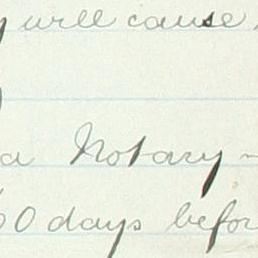 will cause
a Notary -
60 days before